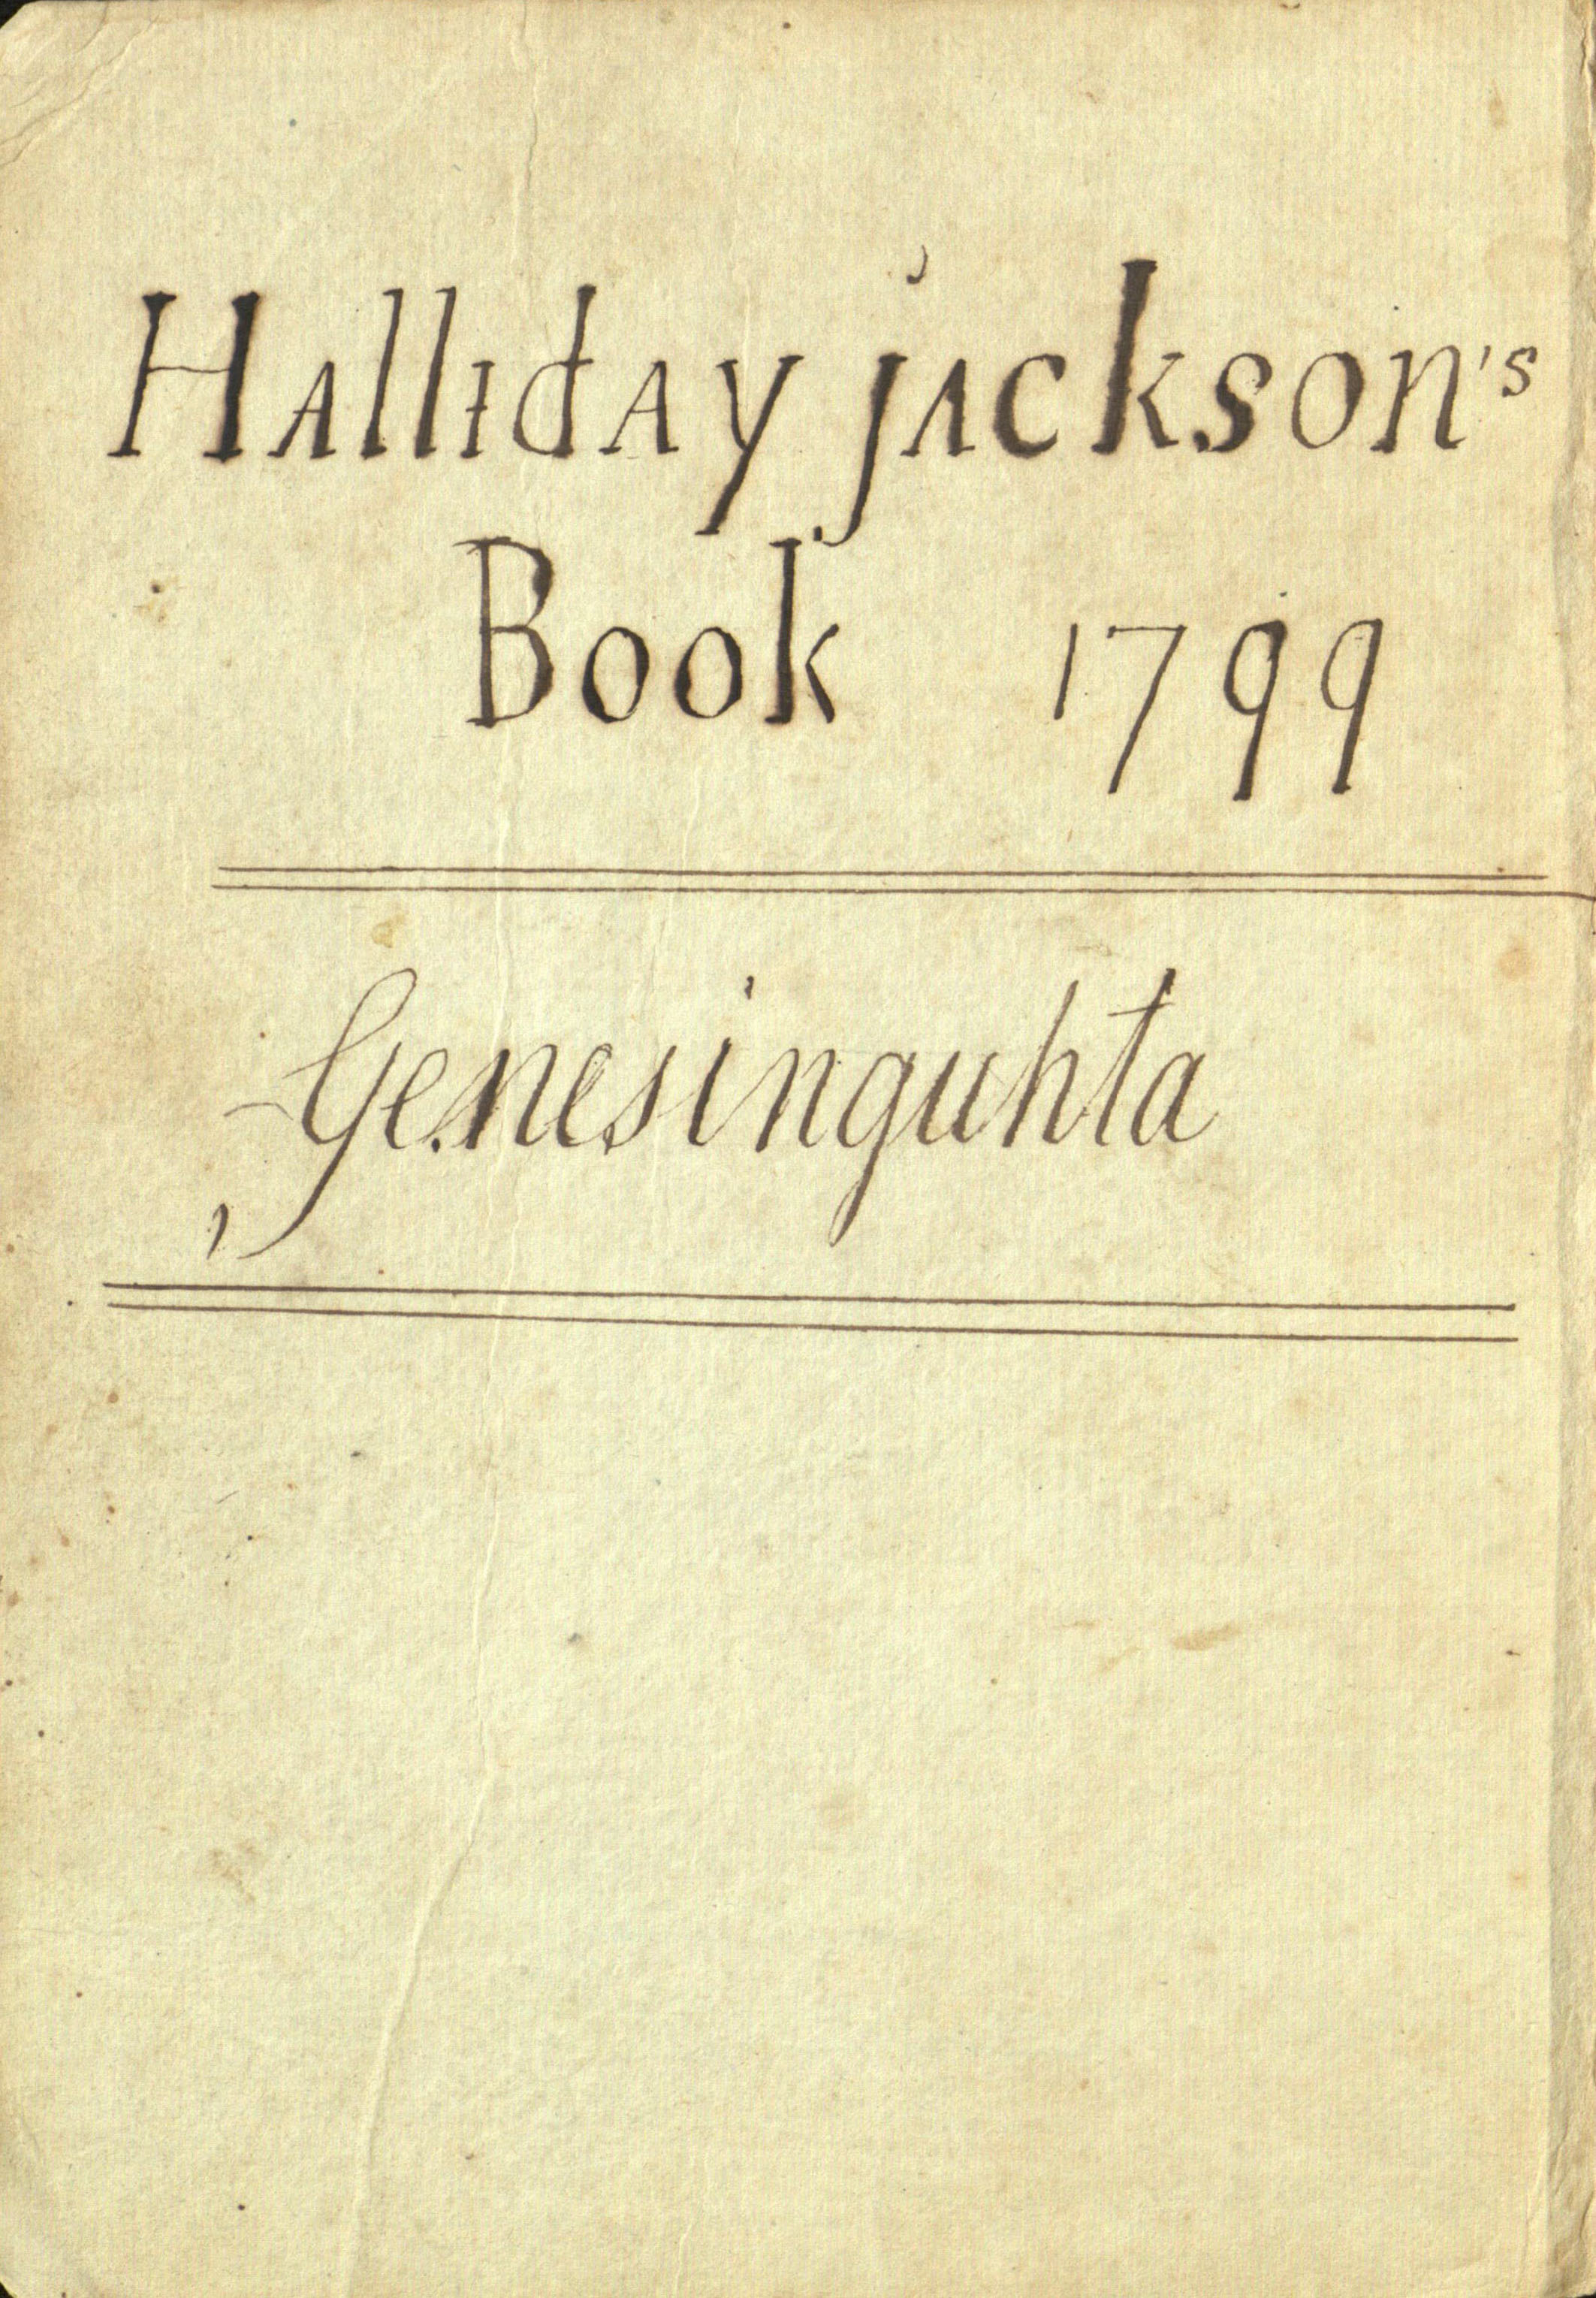 Halliday jackson's
Book 1799
Genesinguhta